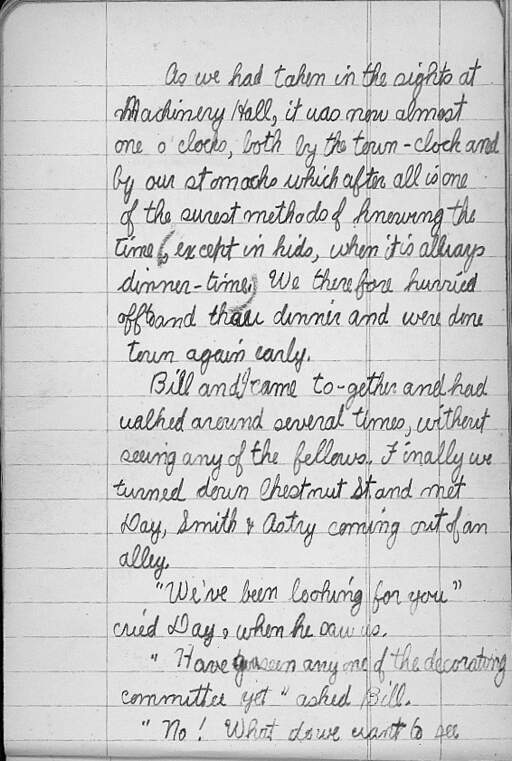 As we had taken in the sights at
Machinery Hall, it was now almost
one o'clock, both by the town-clock and
by our stomachs which after all is one
of the surest methods of knowing the
time (, except in kids, when it is always
dinner-time.) We therefore hurried
off to and thau dinner and were done
town again early.
Bill and I came to-gether and had
walked around several times, without
seeing any of the fellows. Finally we
turned down Chestnut St and met
Day, Smith & Astry coming out of an
alley.
"We've been looking for you"
cried Day, when he saw us.
" Have you seen any one of the decorating
committee yet " asked Bill.
" No! What do we want to see